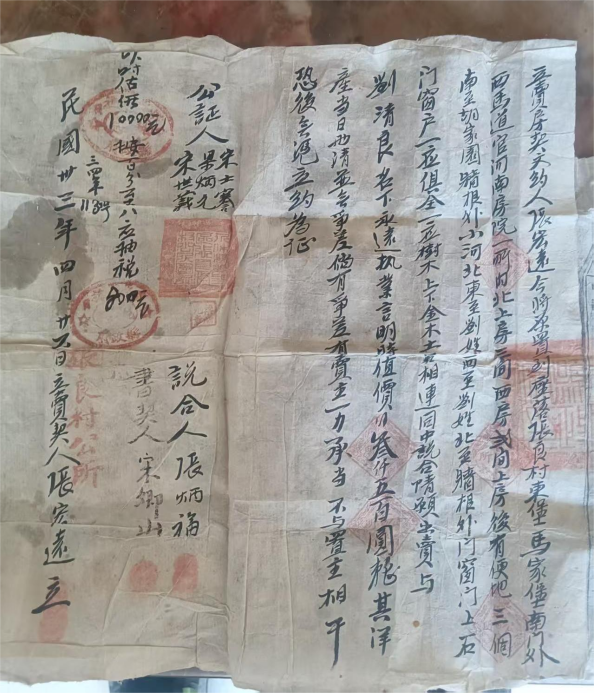 立賣房契文約人張宏遠今將原置到座落張良村東堡馬家堡南门外
西馬道官河南房院一所内北上房三间西房貳间上房後有便地三個
南至胡家園牆根外小河北東至劉姓西至劉姓北至牆根外门窗门上石
门窗户一应俱全一应樹木上下金木土石相連同中說合情願出賣与
劉清良名下永遠执業言明時值價洋叁仟五百圓整其洋
產当日两清並無爭差倘有爭差有賣主一力承当不与置主相干
恐後無凴立約為证
公証人 宋士騫
梁炳元
宋世義
説合人 張炳福
書契人 宋鄉山
以时估價10000元 按百分至八应抽税800元
三四年 11月
民國卅三年四月廿日立賣契人張宏遠立
張良村公所